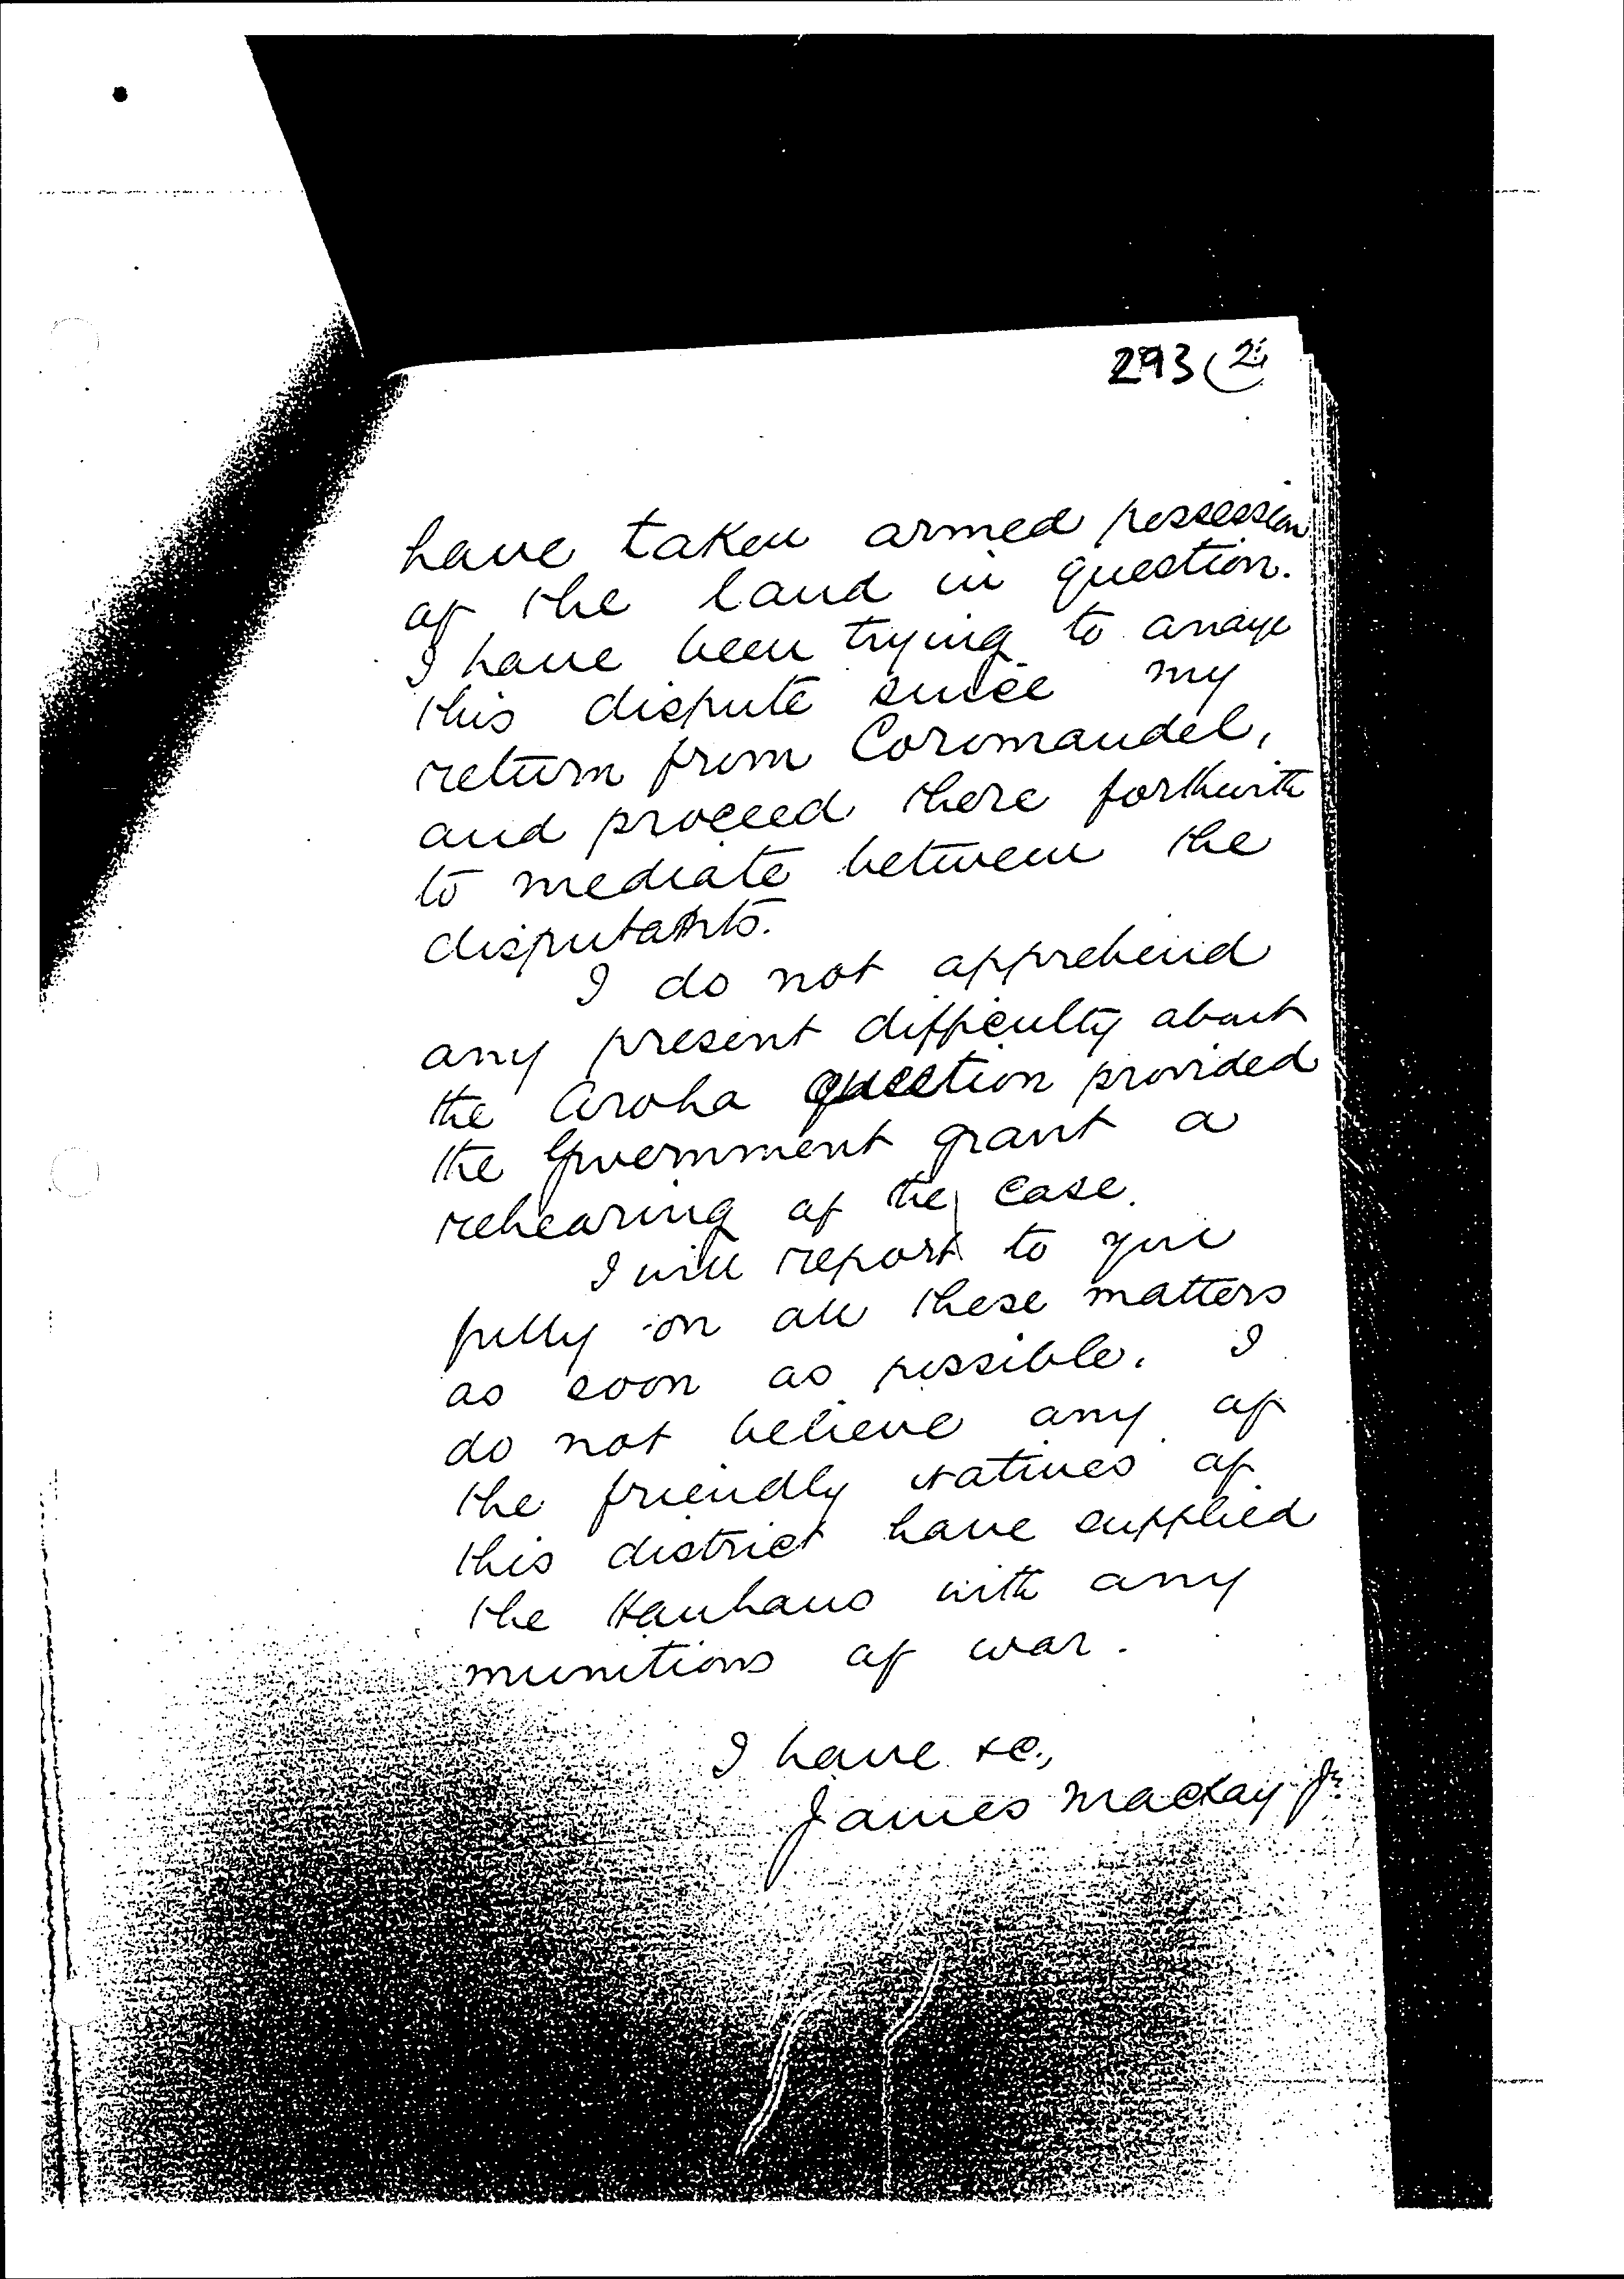 293 (2)
have taken armed possession
of the land in question.
I have been trying to arrange
this dispute since my
return from Coromandel,
and proceed there forthwith
to mediate between the
disputants.
I do not apprehend
any present difficulty about
the Aroha question provided
the Government grant a
rehearing of the case.
I will report to you
fully on all these matters
as soon as possible. I
do not believe any of
the friendly natives of
this district have supplied
the Hauhaus with any
munitions of war.
I have &c.,
James Mackay Jr.